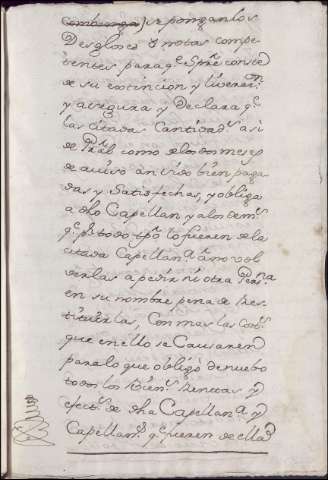 convenga) se pongan los
Desgloses ó notas compe
tentes para q.e Spre conste
de su extincion y liverac.n
y asegura y Declara q.e
las citadas Cantidad.s asi
de Pral como de los dos meses
de auiso an sido bien paga
das y Satisfechas, y obliga
a dho Capellan y a los demas
q.e pr. todo tpo lo fueren de la
citada Capellan.a á no vol
verlas a pedir ni otra Persna
en su nombre pena de Res
tituirlas, Con mas las Cos.s
que en ello se Causaren
para lo que obligó de nuebo
todos los Bien.s Rentas y
efect.s de dha Capellan.a y
Capellan.s q.e fueren de ella